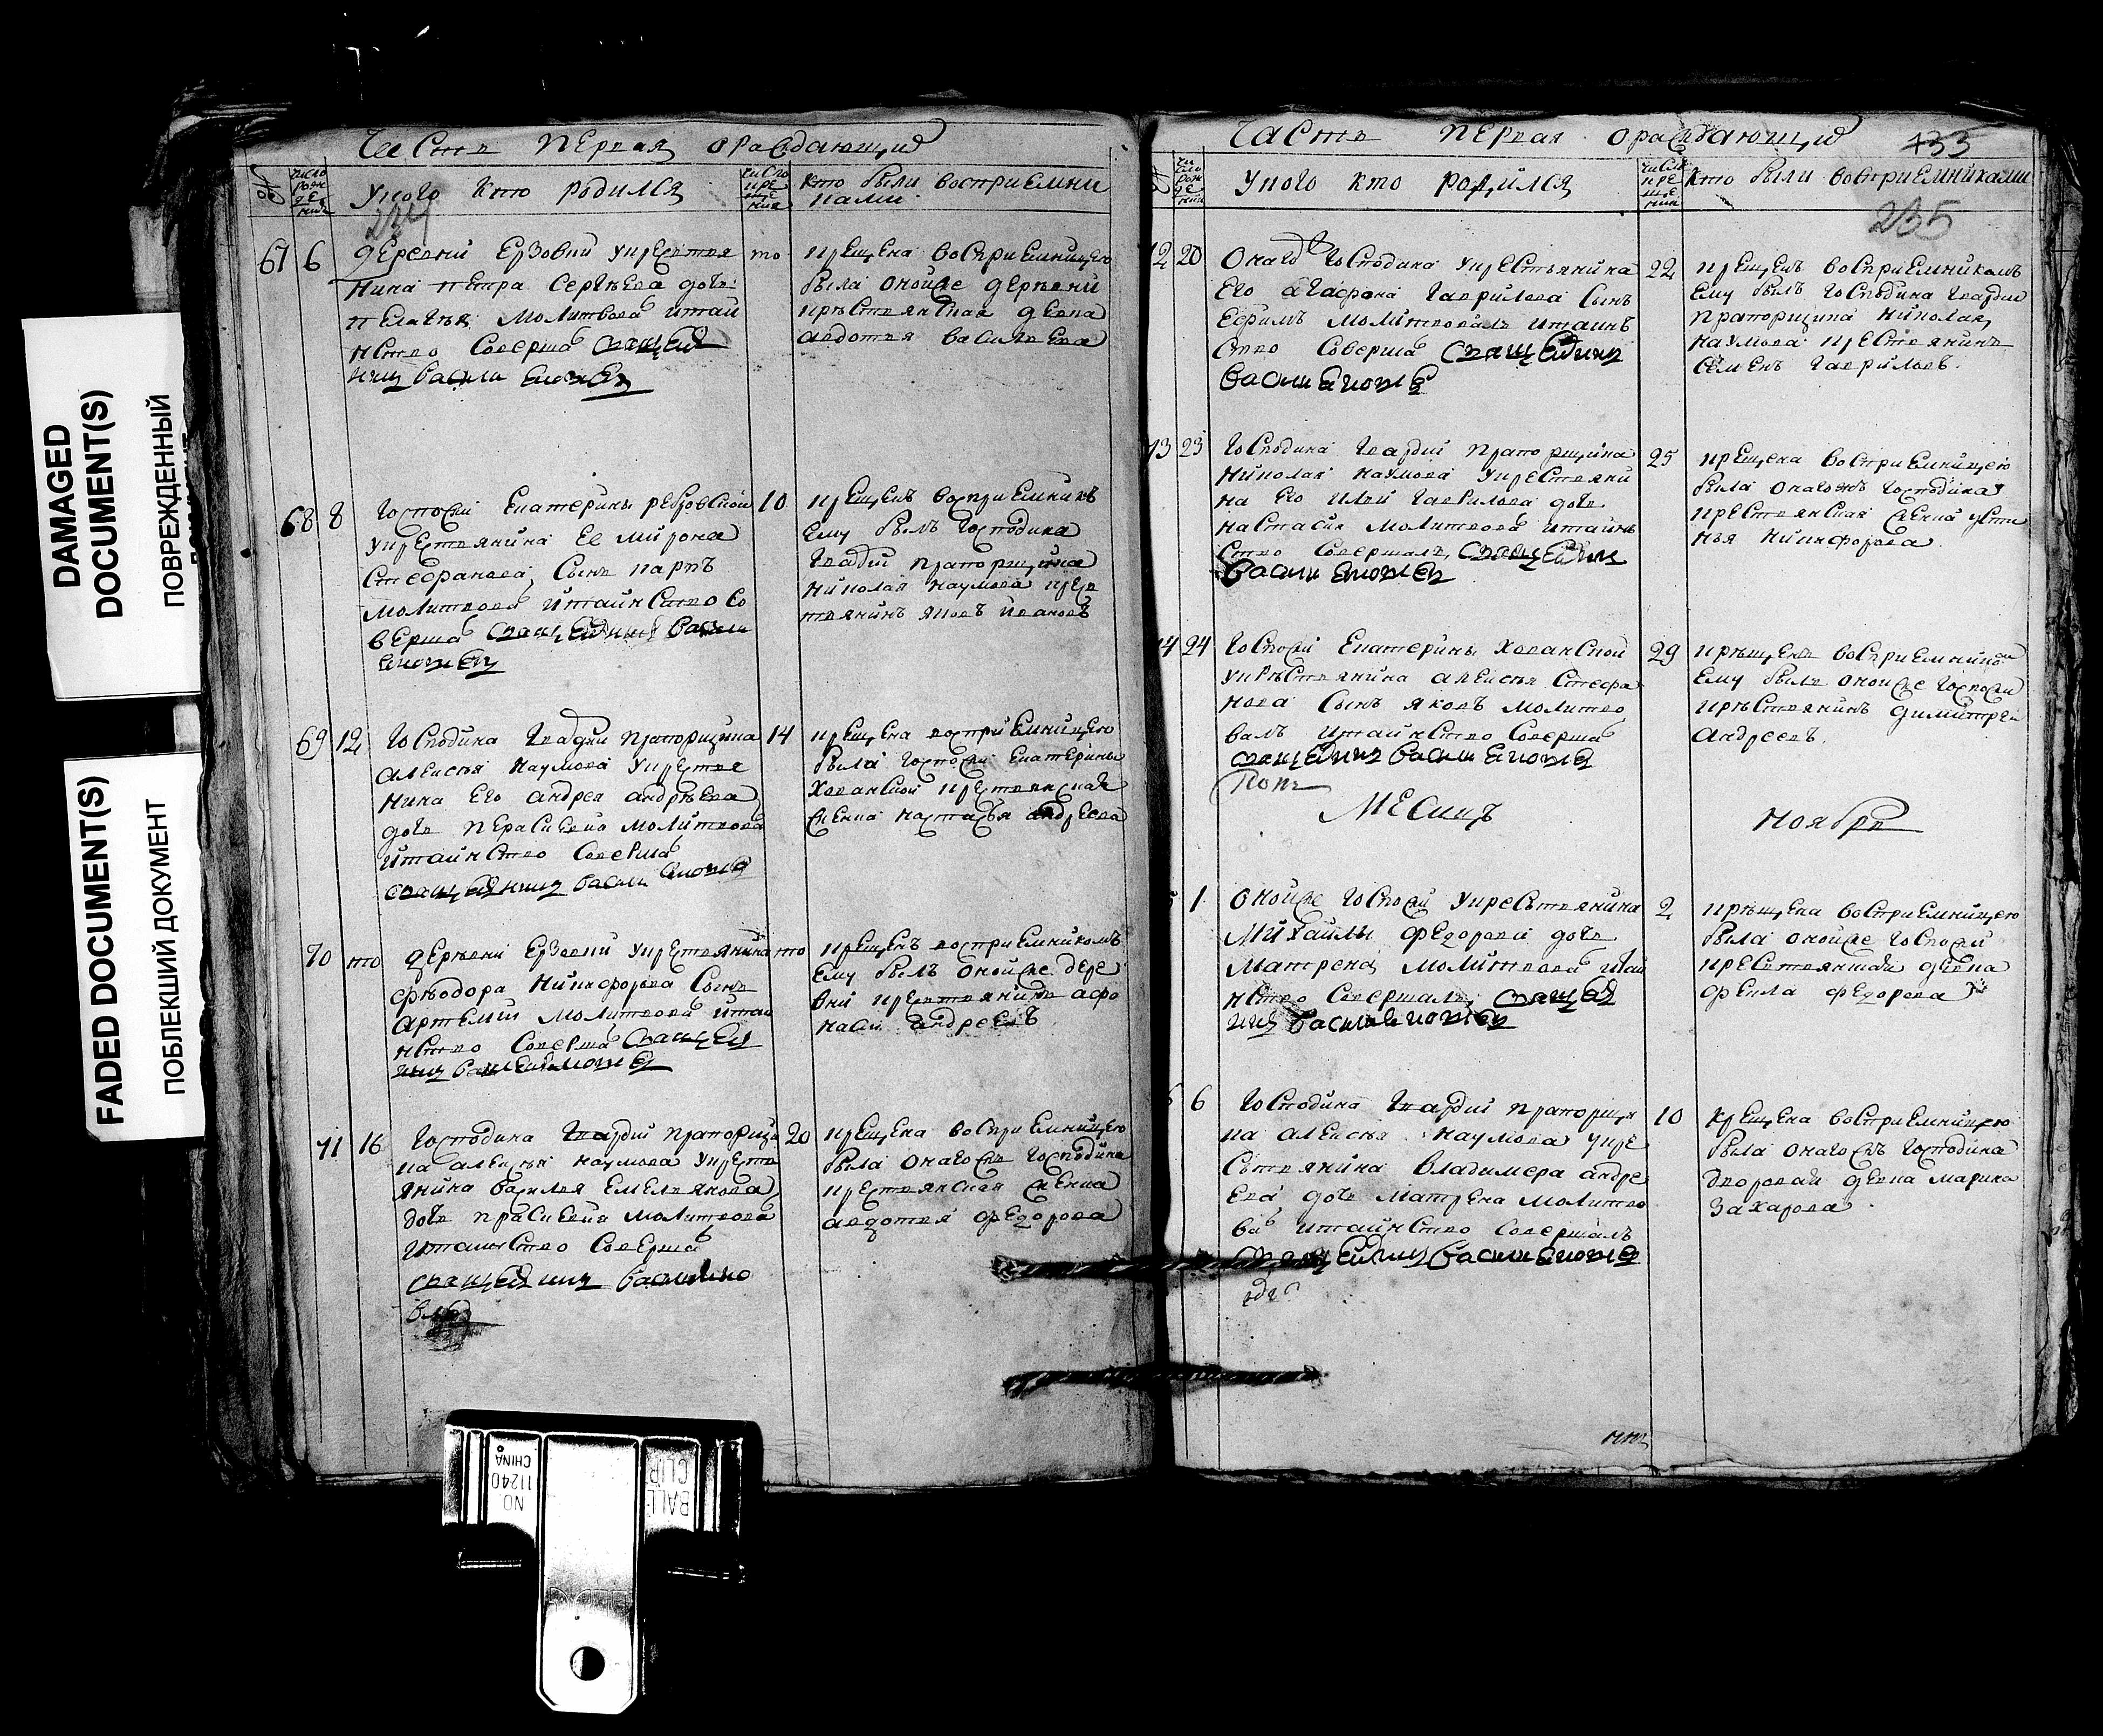 DAMAGED
DOCUMENT(S)
ПОВРЕЖДЕННЫЙ
FADED DOCUMENT(S)
ПОБЛЕКШИЙ ДОКУМЕНТ
Часть первая ораждающихся
число рождения
У кого кто родился
число крещения
кто были восприемниками
234
67 6
деревни Ерзовки укрестья
нина Петра Сергѣева дочь
Пелагѣя молитвовалъ итаи
нство соверша священ
никъ Васили
то
крещена восприемницею
была оной же деревни
крѣстьянская девка
авдотья васильева
68 8
госпожи Екатерины Ребровской
укрестьянина ее Мирона
Стефанова сынъ карпъ
молитвовалъ итаинство со
верша священникъ Васили
10
крещенъ восприемникъ
ему былъ господина
гвардіи прапорщика
николая наумова крес
тьянинъ яковъ ивановъ
69 12
господина гвардіи прапорщика
алексѣя наумова укрестья
нина его андрея андрѣева
дочь параскевия молитвова
итаинство соверша
священникъ васили
14
крещена восприемницею
была госпожи екатерины
хованской крестьянская
женка настасья андреева
70 то
деревни ерзовки укрестьянина
фѣодора никифорова сынъ
артемии молитвова итаи
нство соверша священ
никъ васили
то
крещенъ восприемникомъ
ему былъ оной же дере
вни крестьянинъ афо
насии андреевъ
71 16
господина гвардіи прапорщи
ка алексѣя наумова укресть
янина василья емельянова
дочь прасковия молитвова
итаинство соверша
священникъ васили
20
крещена восприемницею
была онагожъ господина
крестьянская женка
авдотья федорова
Часть первая ораждающихся
133
число рождения
У кого кто родился
число крещения
кто были восприемниками
235
2 20
Онагожъ господина укрестьянина
его агафона гаврилова сынъ
ефимъ молитвовалъ итаинъ
ство соверша священникъ
васили
22
крещенъ восприемникомъ
ему былъ господина гвардіи
прапорщика николая
наумова крестьянинъ
семенъ гавриловъ
73 23
господина гвардіи прапорщика
николая наумова укрестьяни
на его ильи гаврилова дочь
настасия молитвова итаинъ
ство совершалъ священникъ
васили
25
крещена восприемницею
была онагожъ господина
крестьянская женка усти
нья никифорова
4 24
госпожи екатерины хованской
укрѣстьянина алексѣя стефа
нова сынъ яковъ молитво
валъ итаинство соверша
священникъ васили
29
крѣщенъ восприемником
ему былъ оной же госпожи
крѣстьянинъ димитреи
андреевъ
Месицъ
ноябрь
1
оной же госпожи укрестьянина
михаилы федорова дочь
матрена молитвова итаи
нство совершалъ священ
никъ васили
2
крѣщена восприемницею
была оной же госпожи
крестьянская девка
фекла федорова
6
господина гвардіи прапорщи
ка алексѣя наумова укре
стьянина владимера андре
ева дочь матрена молитво
ва итаинство совершалъ
священникъ васили
10
крещена восприемницею
была онагожъ господина
дворовая девка марина
захарова
BALL
CLIP
NO
11240
CHINA